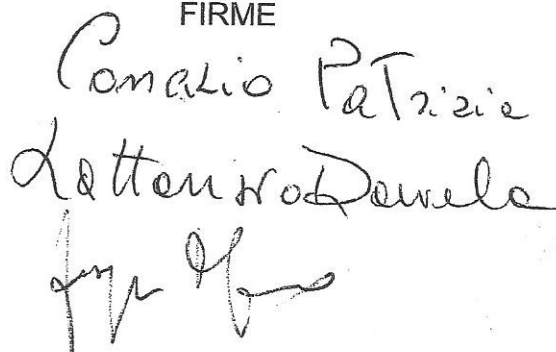 FIRME
Conazio Patrizia
Lattanzio Daniela